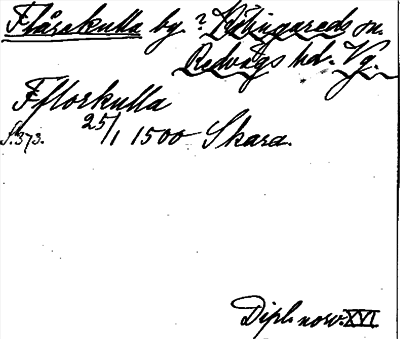 Flårakulla by. ? Kölingareds sn.
Redvägs hd. Vg.
Fflorkulla
S. 373. 25/1 1500 Skara.
Dipl. norv. XVI